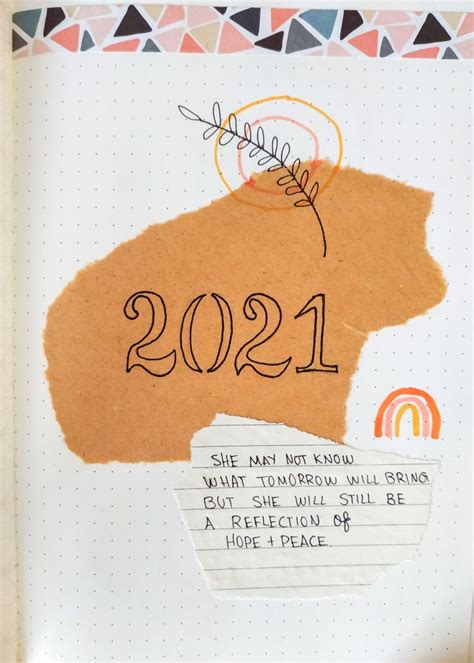 2021
SHE MAY NOT KNOW
WHAT TOMORROW WILL BRING
BUT SHE WILL STILL BE
A REFLECTION of
HOPE + PEACE.